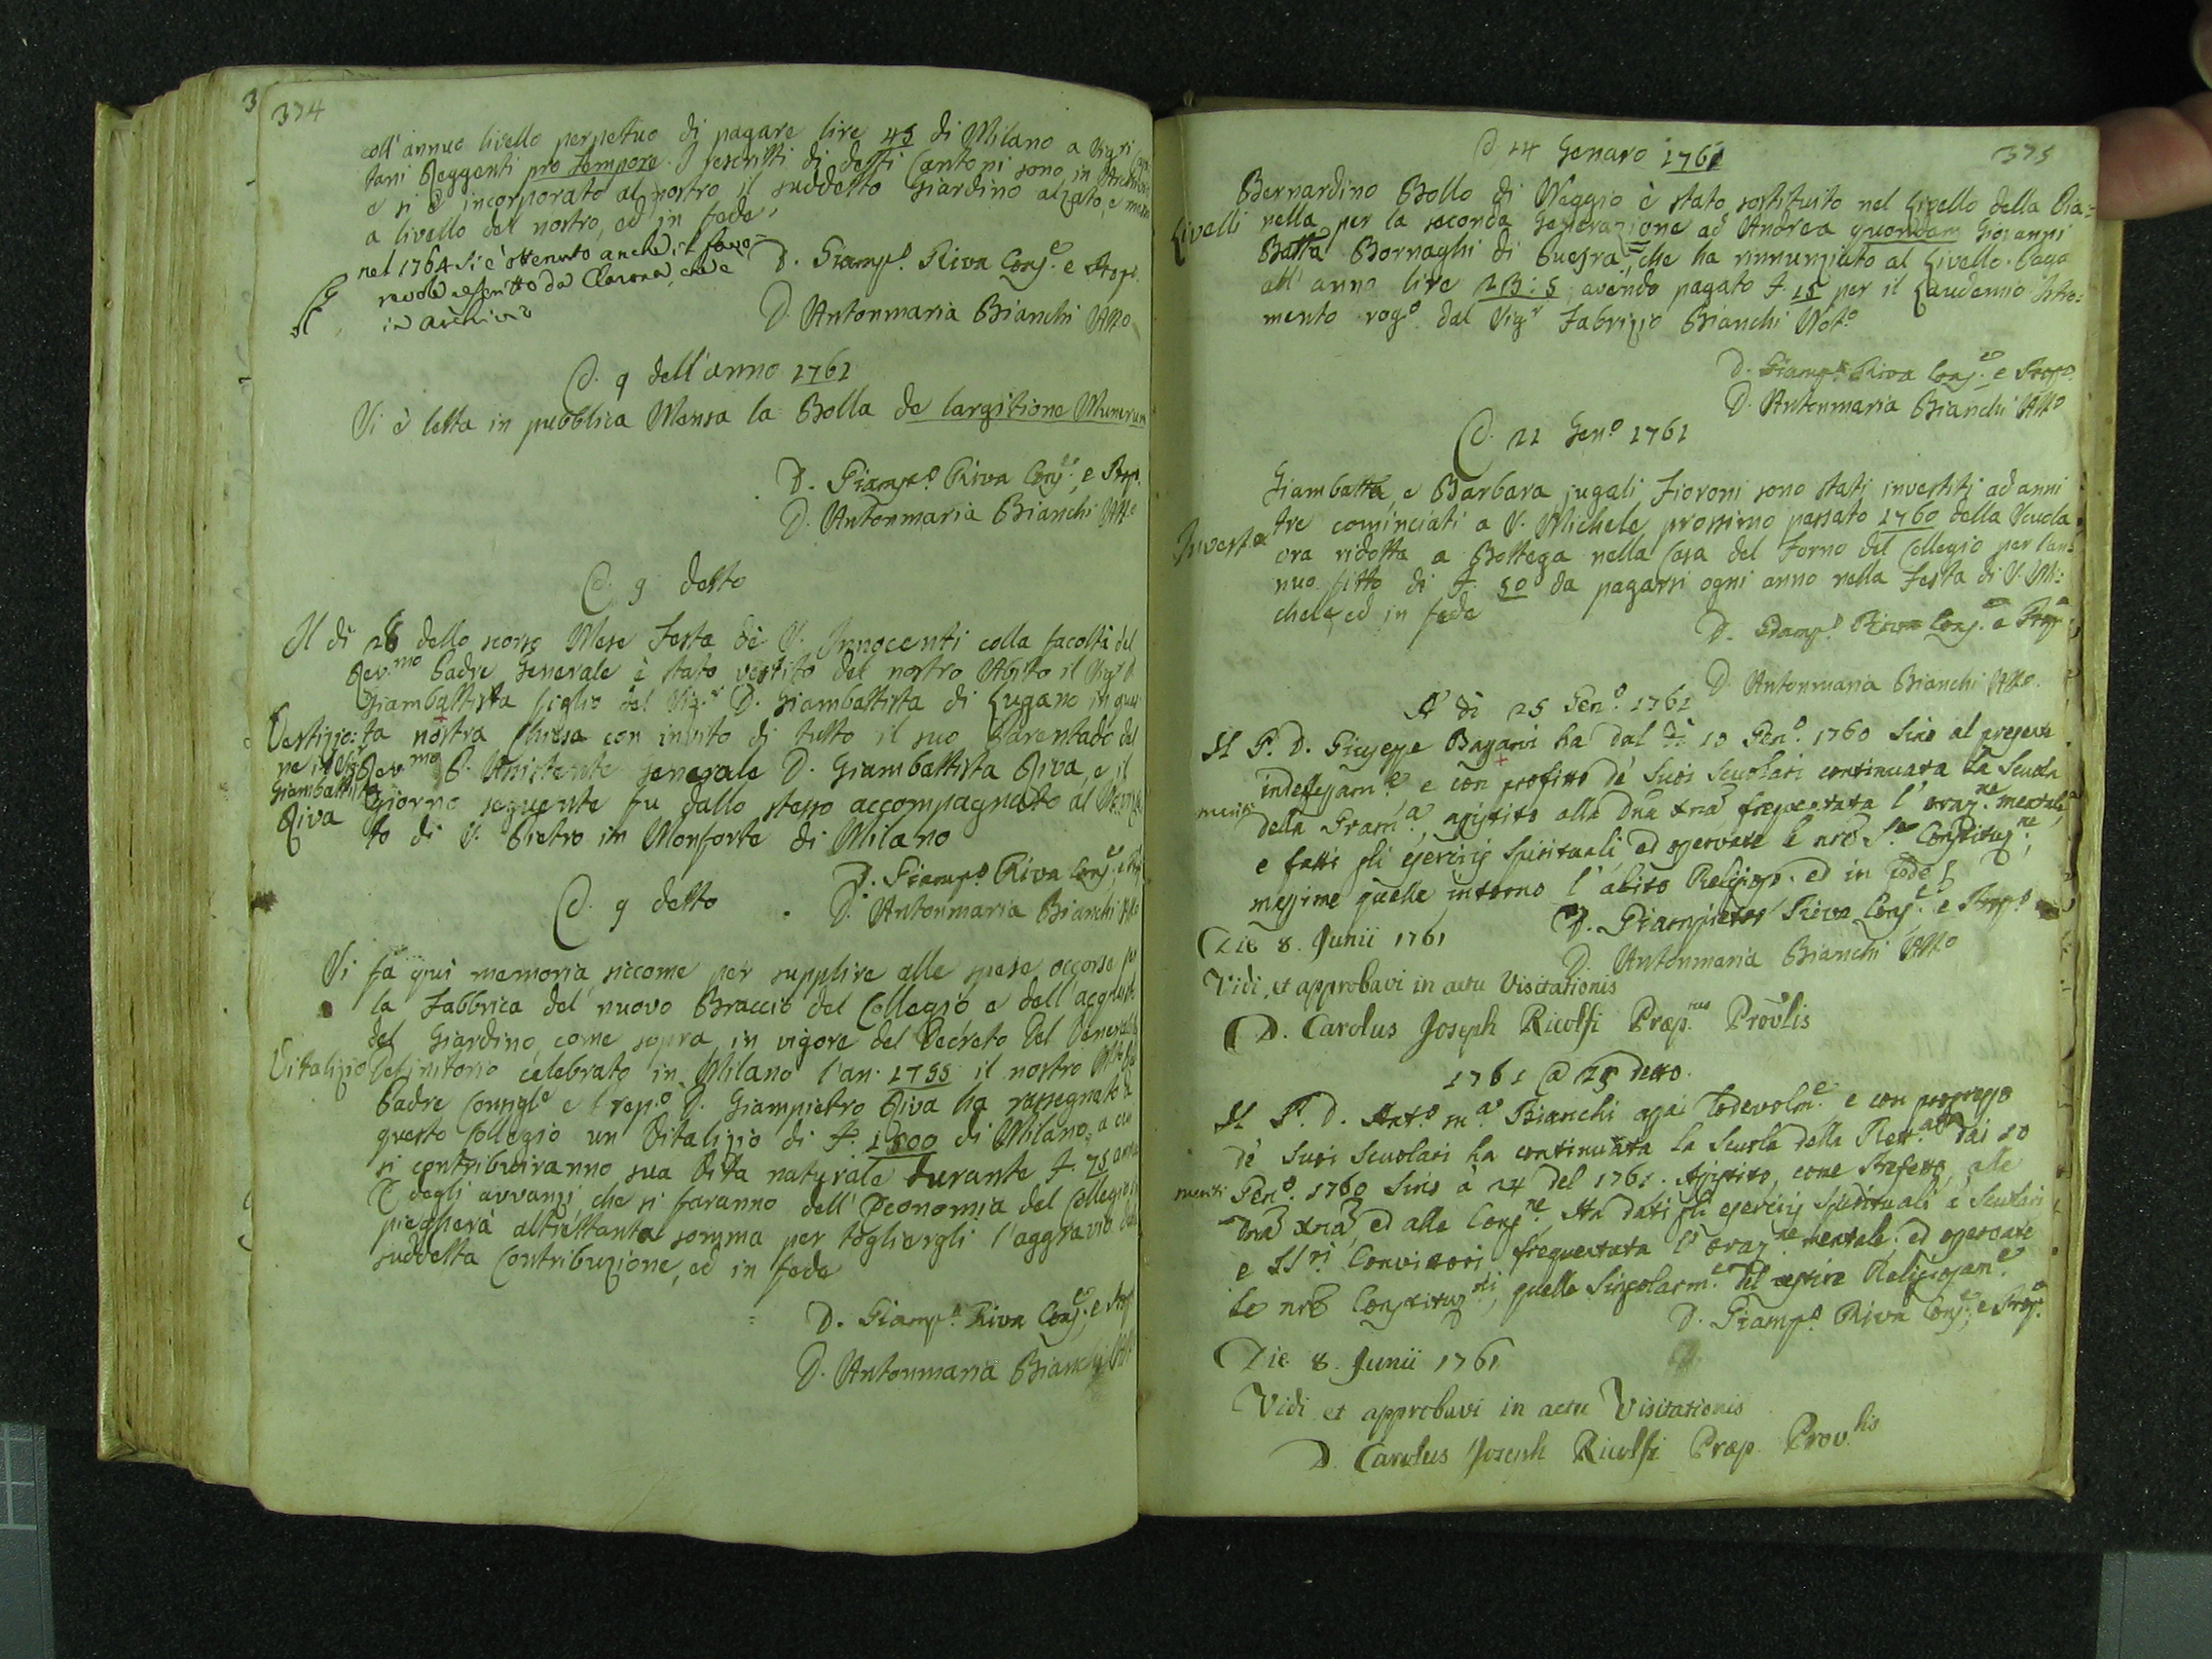 374
coll' annuo livello perpetuo di pagare lire 45 di Milano a Sig.ri Capi:
tani Reggenti pro tempore. I rescritti di detti Cantoni sono in Archivio
e si è incorporato al nostro il suddetto Giardino alzato, e messo
a livello del nostro, ed in fede,
nel 1764 si è ottenuto anche il favo=
revole rescritto da Claronà, che è
in Archivio
D. Giamp.o Riva Cons.e e Prop.
D. Antonmaria Bianchi Att.o
A 9 dell' anno 1761
Si è letta in pubblica Mensa la Bolla de largitione Munerum
D. Giamp.o Riva Cons.e, e Prop.
D. Antonmaria Bianchi Att.o
A 9 detto
Il di 28 dello scorso Mese Festa de' S. Innocenti colla facoltà del
Rev.mo Padre Generale è stato vestito del nostro Abito il Sig.r
Giambattista figlio del Sig.r D. Giambattista di Lugano in ques
Vestizio:
ta nostra Chiesa con invito di tutto il suo Parentado dal
ne del Sig.r
Rev.mo P. Assistente Generale D. Giambattista Riva, e il
Giambattista
giorno seguente fu dallo stesso accompagnato al Novizia
Riva
to di S. Pietro in Monforte di Milano
D. Giamp.o Riva Cons.e e Prop.
D. Antonmaria Bianchi Att.o
A 9 detto
Si fa qui memoria, siccome per supplire alle spese occorse per
la Fabbrica del nuovo Braccio del Collegio, e dell' acquisto
del Giardino, come sopra, in vigore del Decreto del Venerabile
Vitalizio
Definitorio celebrato in Milano l' an. 1755 il nostro
Padre Consigl.e e Prep.o D. Giampietro Riva ha rassegnato a
questo Collegio un Vitalizio di L. 1500 di Milano, a cui
si contribuiranno sua Vita naturale durante L. 75 annue
E degli avvanzi, che si faranno dell' Economia del Collegio si
piegherà altrettanta somma per togliergli l' aggravio della
suddetta Contribuzione, ed in fede
D. Giamp.o Riva Cons.e, e Prop.
D. Antonmaria Bianchi Att.o
375
A 14 Genaro 1761
Bernardino Bollo di Neggio è stato sostituito nel Livello della Pia=
Livelli
nella per la seconda Generazione ad Andrea quondam Giovanni
Batta Bornaghi di Puesra, che ha rinnunziato al Livello. Paga
all' anno lire 23:5 avendo pagato L. 15 per il Laudemio. Istro:
mento rog.o dal Sig.r Fabrizio Bianchi Not.o
D. Giamp.o Riva Cons.e e Prop.o
D. Antonmaria Bianchi Att.o
A 21 Gen.o 1761
Giambatta, e Barbara jugali Fioroni sono stati investiti ad anni
Invest.a
tre cominciati a S. Michele prossimo passato 1760 della Scuola
ora ridotta a Bottega nella Casa del Forno del Collegio per l' an:
nuo fitto di L. 50 da pagarsi ogni anno nella Festa di S. Mi:
chele, ed in fede
D. Giamp.o Riva Cons.e e Prop.o
D. Antonmaria Bianchi Att.o
A dì 25 Gen.o 1761
Il P. D. Giuseppe Bagarni ha dal di 10 Gen.o 1760 sino al presente
indefessam.e e con profitto de' suoi Scuolari continuata la Scuola
meriti
della Gram.a, assistito alla Dna Xna, frequentata l' oraz.ne mentale,
e fatti gli esercizj spirituali, ed osservate le nre S.e Constituz.ni,
massime quelle intorno l' abito Religioso. ed in fede
D. Giampietro Riva Cons.e e Prop.o
D. Antonmaria Bianchi Att.o
Die 8. Junii 1761
Vidi, et approbavi in actu Visitationis
D. Carolus Joseph Ricolfi Præp.tus Prov̄lis
1761 A 25 detto.
Il P. D. Ant.o m.a Bianchi assai lodevolm.e e con progresso
de' suoi Scuolari ha continuata la Scuola della Rett.a dai 10
meriti
Gen.o 1760 sino à 24 del 1761. Assistito, come Prefetto, alle
Dna Xna, ed alle Cong.ne. Ha dati gli esercizj spirituali à Scuolari
e SS.ri Convittori. frequentata l' oraz.ne mentale, ed osservate
le nre Constituz.ni, quelle singolarm.e del vestire Religiosam.e
D. Giamp.o Riva Cons.e e Prop.o
Die 8. Junii 1761
Vidi et approbavi in actu Visitationis
D. Carolus Joseph Ricolfi Præp. Prov.lis